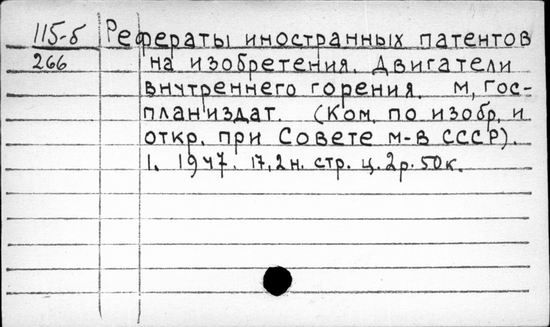 115-б Рефераты иностранных патентов
266 на изобретения. Двигатели
внутреннего горения. М, Гос-
планиздат. (Ком. по изобр. и
откр. при Совете м-в СССР).
1. 1947. 17,2н. стр. ц. 2р. 50к.